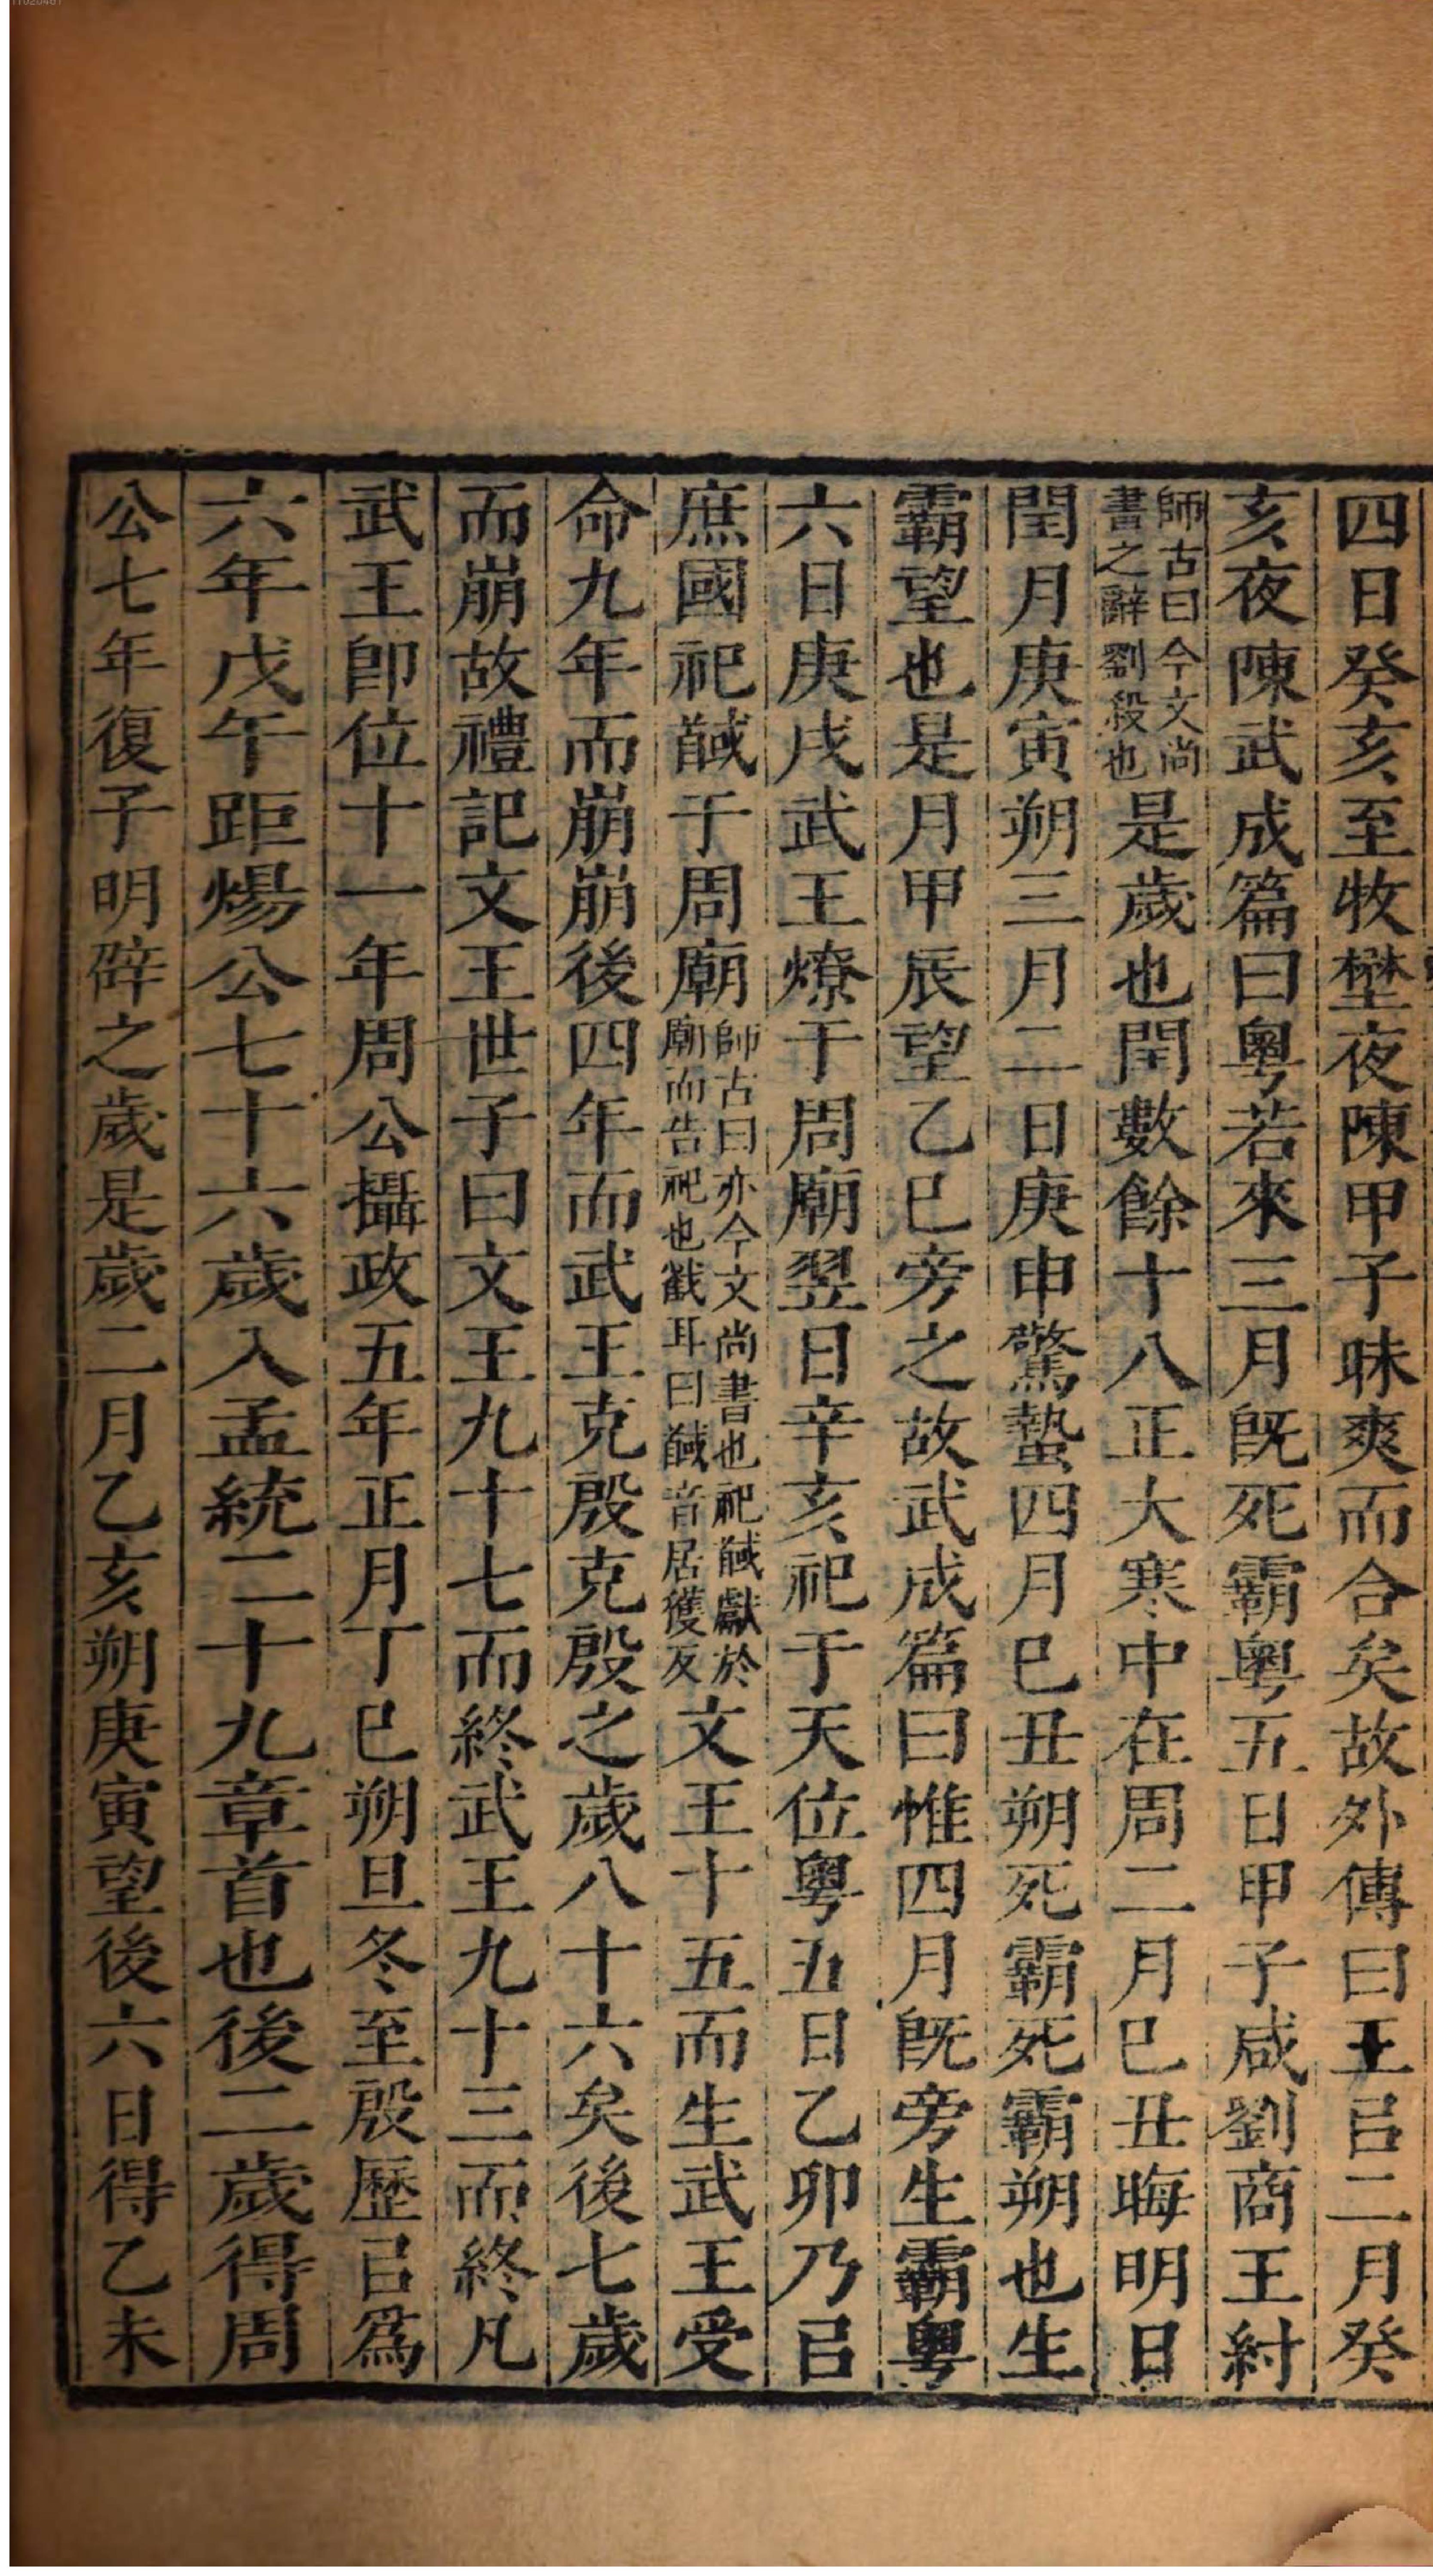 四日癸亥至牧壄夜陳甲子昧爽而合矣故外傳曰王㠯二月癸
亥夜陳武成篇曰粵若來三月旣死霸粵五日甲子咸劉商王紂
師古曰今文尚
書之辭劉殺也
是歲也閏數餘十八正大寒中在周二月巳丑晦明日
閏月庚寅朔三月二日庚申驚蟄四月巳丑朔死霸死霸朔也生
霸望也是月甲辰望乙巳旁之故武成篇曰惟四月旣旁生霸粵
六日庚戌武王燎于周廟翌日辛亥祀于天位粵五日乙卯乃㠯
庶國祀馘于周廟
師古曰亦今文尚書也祀馘獻於
廟而告祀也截耳曰馘音居獲反
文王十五而生武王受
命九年而崩崩後四年而武王克殷克殷之歲八十六矣後七歲
而崩故禮記文王世子曰文王九十七而終武王九十三而終凡
武王卽位十一年周公攝政五年正月丁巳朔旦冬至殷歷㠯爲
六年戊午距煬公七十六歲入孟統二十九章首也後二歲得周
公七年復子明辟之歲是歲二月乙亥朔庚寅望後六日得乙未